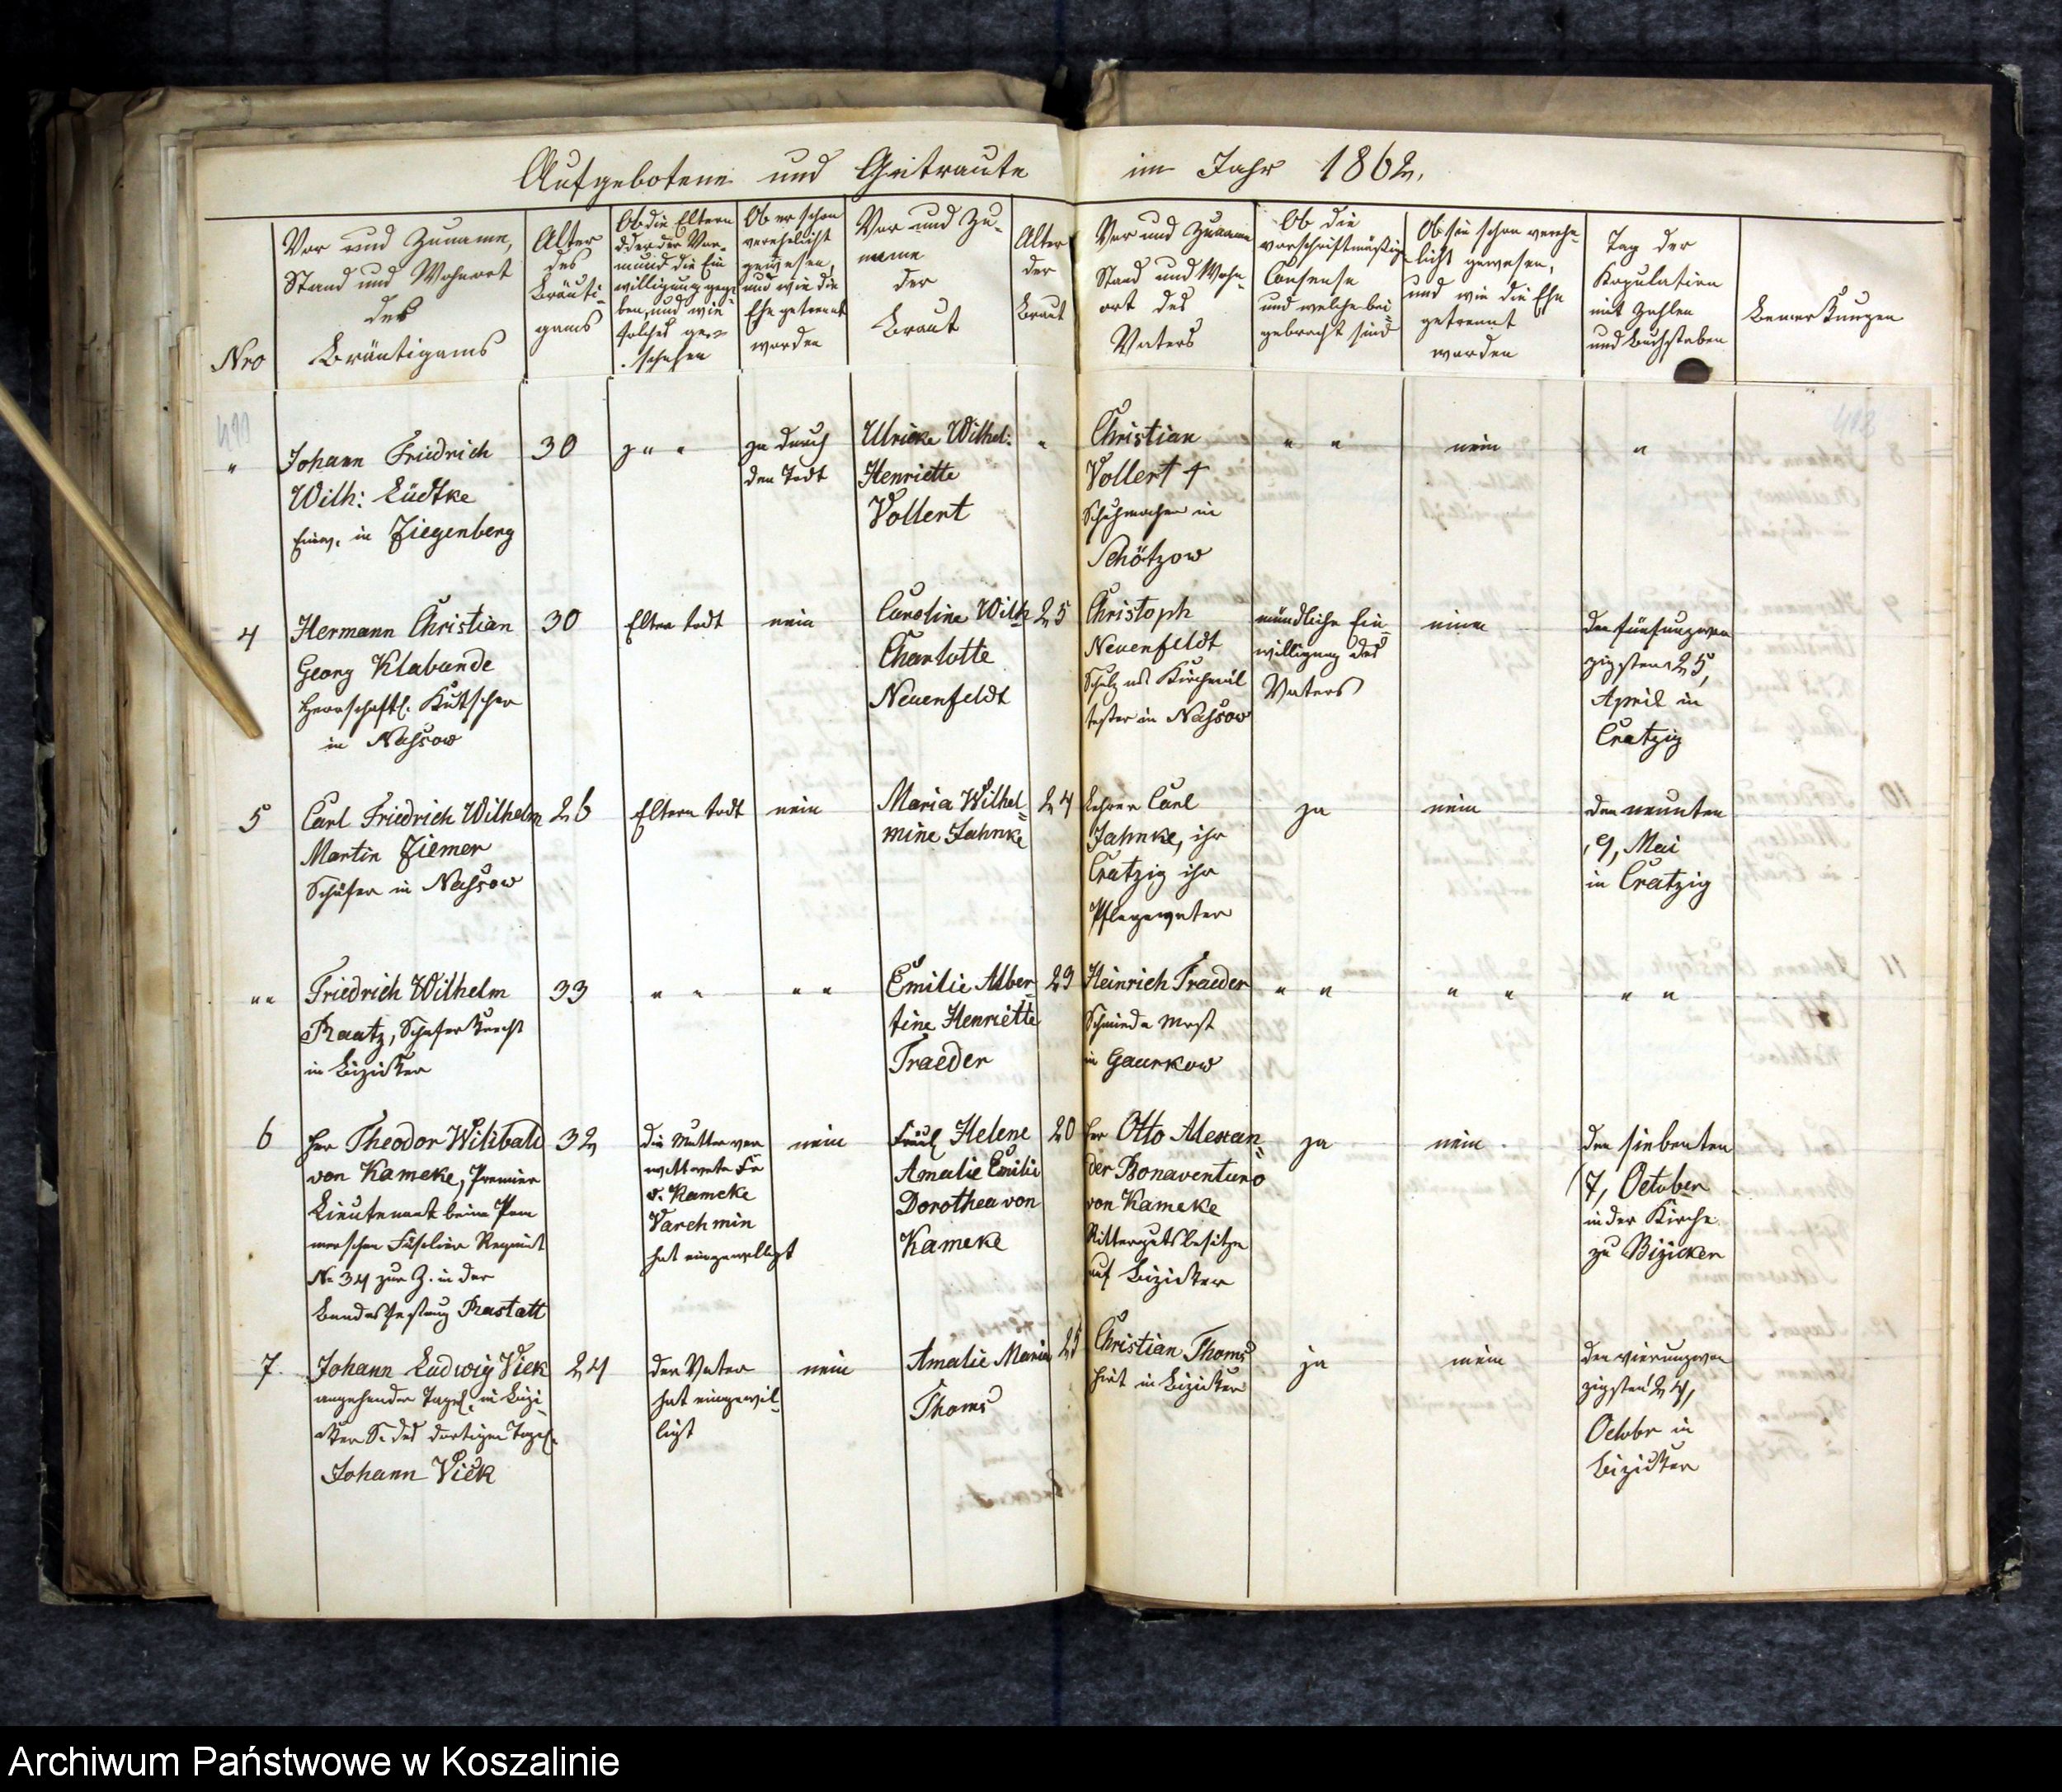 Aufgebotene und Getraute im Jahr 1862.
Nro
Vor und Zuname,
Stand und Wohnort
des
Bräutigams
Alter
des
Bräuti-
gams
Ob die Eltern
oder der Vor-
mund die Ein
willigung gege-
ben, und wie
solches ge-
schehen
Ob er schon
verehelicht
gewesen,
und wie die
Ehe getrennt
worden
Vor und Zu-
name
der
Braut
Alter
der
Braut
Vor und Zuname
Stand und Wohn-
ort des
Vaters
Ob die
vorschriftmäßige
Consense
und welche bei
gebracht sind
Ob sie schon verehe-
licht gewesen,
und wie die Ehe
getrennt
worden
Tag der
Kopulation
mit Zahlen
und Buchstaben
Bemerkungen
"
Johann Friedrich
Wilh: Lüdtke
Einw. in Ziegenberg
30
" "
ja durch
den Todt
Ulricke Wilhel:
Henriette
Vollert
"
Christian
Vollert †
Schuhmacher in
Schötzow
" "
nein
"
4
Hermann Christian
Georg Klabunde
Herrschaftl. Kutscher
in Nassow
30
Eltern todt
nein
Caroline Wilh
Charlotte
Neuenfeldt
25
Christoph
Neuenfeldt
Schulz und Kirchenäl
tester in Nassow
mündliche Ein-
willigung des
Vaters
nein
den fünfundzwan
zigsten 25,
April in
Cratzig
5
Carl Friedrich Wilhelm
Martin Ziemer
Schäfer in Nassow
26
Eltern todt
nein
Maria Wilhel-
mine Jahnke
24
Lehrer Carl
Jahnke, ihr
Cratzig ihr
Pflegevater
ja
nein
den neunten
9, Mai
in Cratzig
" "
Friedrich Wilhelm
Raatz, Schaferknecht
in Bizicker
33
" "
" "
Emilie Alber-
tine Henriette
Traeder
23
Heinrich Traeder
Schmiede Mst
in Gaurkow
" "
" "
" "
6
Herr Theodor Wilibald
von Kameke, Premier
Lieutenant beim Pom
merschen Füsilier Regimt
No 34 zur Z. in der
Bundesfestung Rastatt
32
die Mutter ver
wittwete Fr
v. Kameke
Varchmin
hat eingewilligt
nein
Fräul Helene
Amalie Emilie
Dorothea von
Kameke
20
Herr Otto Alexan-
der Bonaventuro
von Kameke
Rittergutsbesitzer
auf Bizicker
ja
nein
den siebenten
7, October
in der Kirche
zu Bizicker
7.
Johann Ludwig Vick
angehender Tagel. in Bizi-
cker S. des dortigen Tagel.
Johann Vick
24
der Vater
hat eingewil-
ligt
nein
Amalie Maria
Thoms
25
Christian Thoms
Hirt in Bizicker
ja
nein
den vierundzwan
zigsten 24,
October in
Bizicker
Archiwum Państwowe w Koszalinie